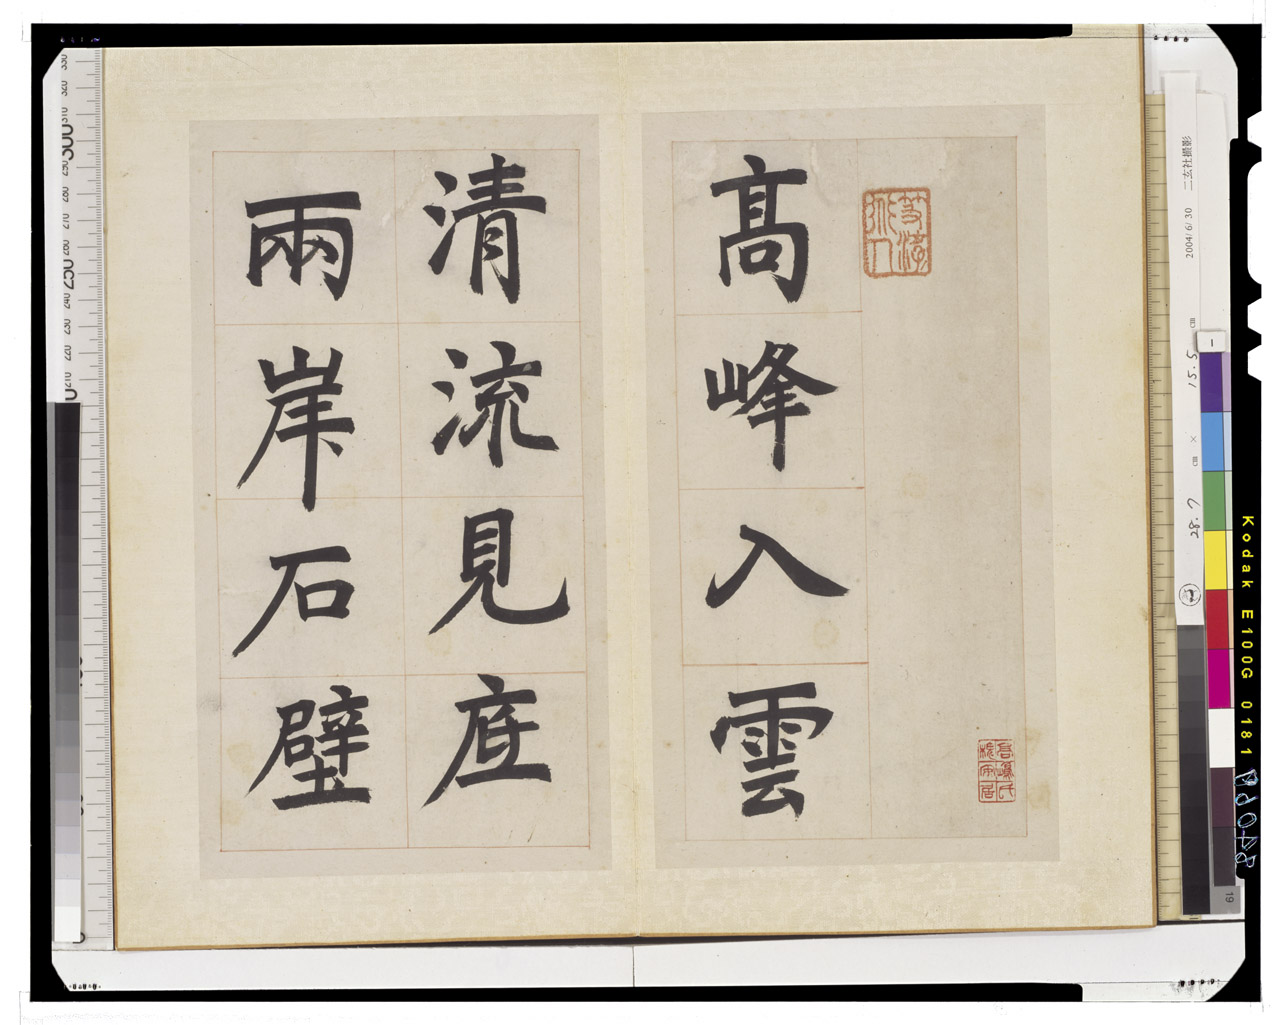 高峰入雲
清流見底
兩岸石壁
二玄社撮影
2004/6/30
28.7 cm × 15.5 cm
Kodak E100G 0181
19